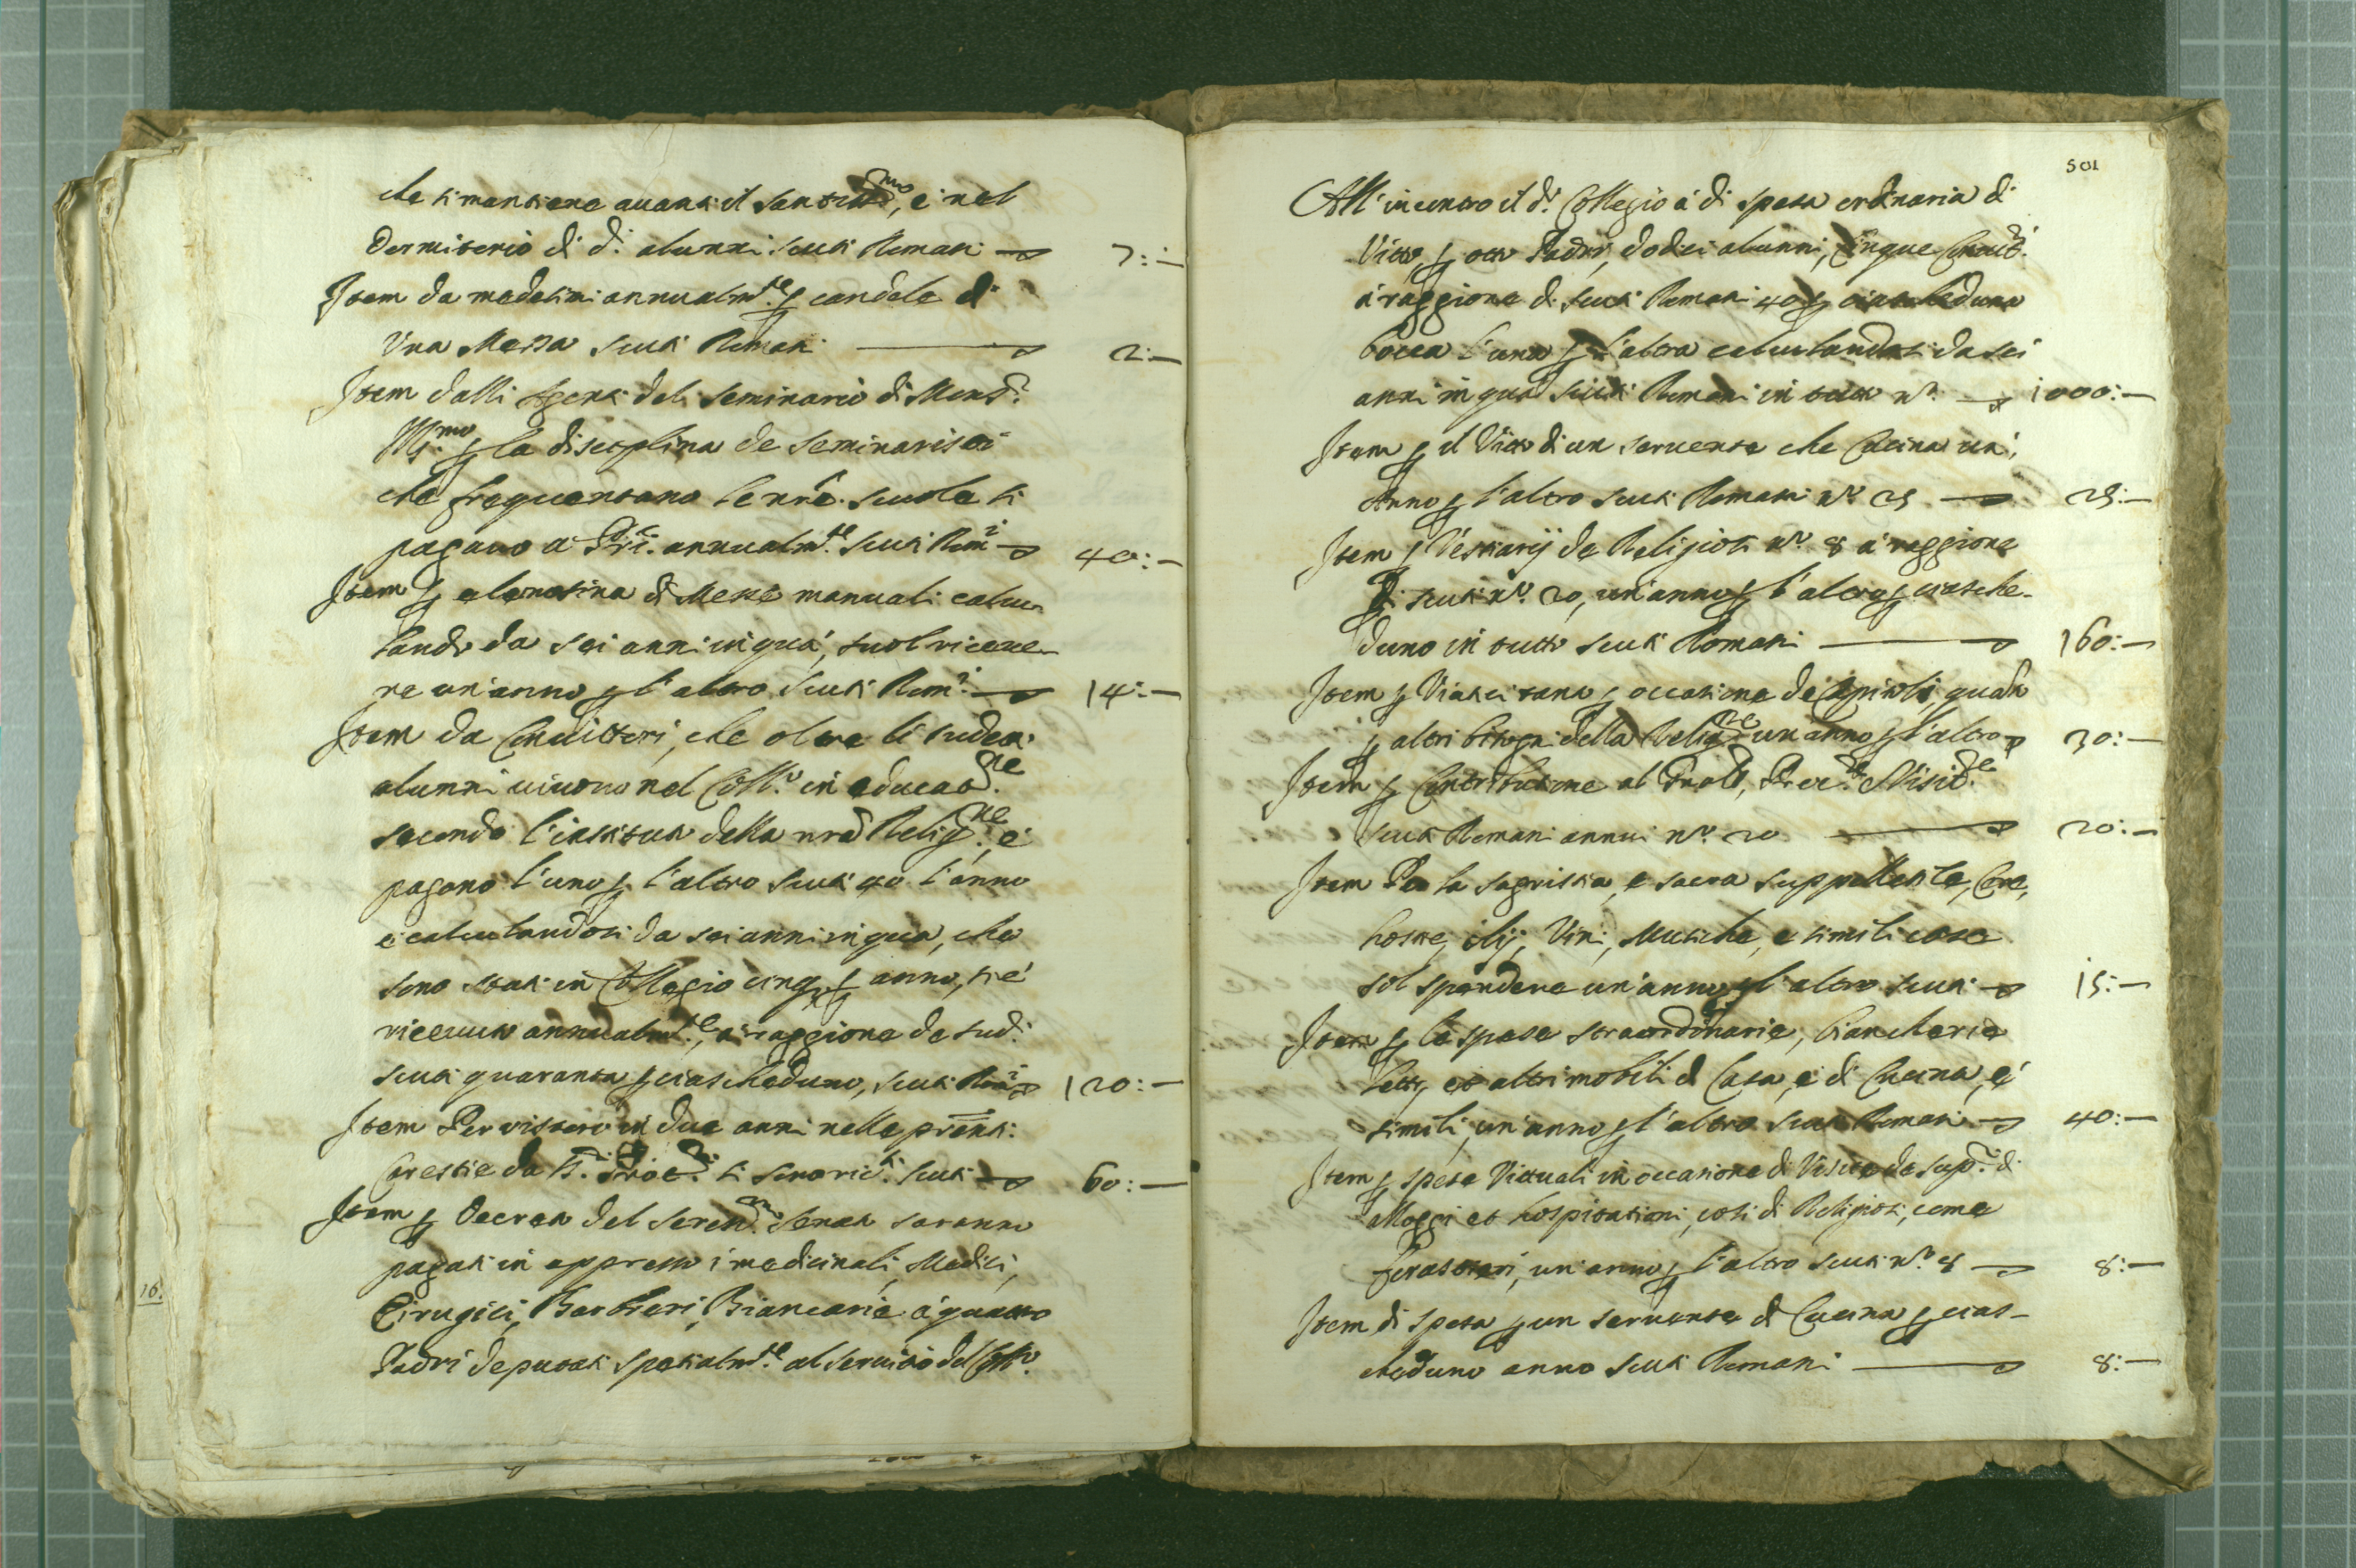 che si mantiene auanti il Santiss.mo, e nel
Dormitorio di d.i alunni scuti Romani 7:—
Item da medesimi annualm.te p candele di
Una Messa scuti Romani 2:—
Item dalli Agenti del Seminario di Mons.r
Ill.mo p la disciplina de Seminaristi
che frequentano le nr̃e scuole si
pagano a Pri: annualm.te scuti Rom.i 40:—
Item p elemosina di Messe manuali calcu-
lando da sei anni in quà, suol riceue-
re un'anno p l'altro scuti Rom.i 14:—
Item da Conuittori, che oltre li sudetti
alunni uiuono nel Coll.o in educat.ne
secondo l'instituti della nrã Relig.ne, e
pagano l'uno p l'altro scuti 40 l'anno
e calculandosi da sei anni in qua, che
sono stati in Collegio cinq3 p anno, si è
riceuuto annualm.te, a raggione de sud.i
scuti quaranta p ciascheduno, scuti Rom.i 120:—
Item Per ristoro in due anni nelle prẽnti
Carestie da
scuti 60:—
Item p Decreti del Seren.mo Senato saranno
pagati in appresso i medicinali, Medici,
Cirugici, Barbieri, Biancarie a quattro
Padri deputati spetialm.te al seruitio del Coll.o
16.
501
All'incontro il d.o Collegio à di spesa ordinaria di
Vitto, p otto Padri, dodici alunni, Cinque Conuitt.i
à raggione di scuti Romani 40 p ciascheduna
bocca l'una p l'altra calculandosi da sei
anni in qua scuti Romani in tutto n.o 1000:—
Item p il Vitto di un seruente che Cucina un'
Anno p l'altro scuti Romani n.o 25 25:—
Item p Vestiarij de Religiosi n.o 8 a raggione
di scuti n.o 20, un'anno p l'altro p ciasche-
duno in tutto scuti Romani 160:—
Item p Viatici tanto p occasione de Capitoli, quanto
p altri bisogni della Relig.ne un'anno p l'altro 30:—
Item p Contributione al Proule, Proc.re e Visit.re
scuti Romani annui n.o 20 20:—
Item Per la sagristia, e sacra suppellentile, Cere,
hostie, olij, Vini, Musiche, e simili cose
sol spendere un'anno p l'altro scuti 15:—
Item p le spese straordinarie, biancherie
letti, et altri mobili di Casa, e di Cucina, e
simili, un'anno p l'altro scuti Romani 40:—
Item p spese Vittuali in occasione di Visite de Sup.ri di
Alloggi et hospitationi, così di Religiosi, come
forastieri, un'anno p l'altro scuti n.o 8 8:—
Item di spesa p un seruente di Cucina p cias-
cheduno anno scuti Romani 8:—